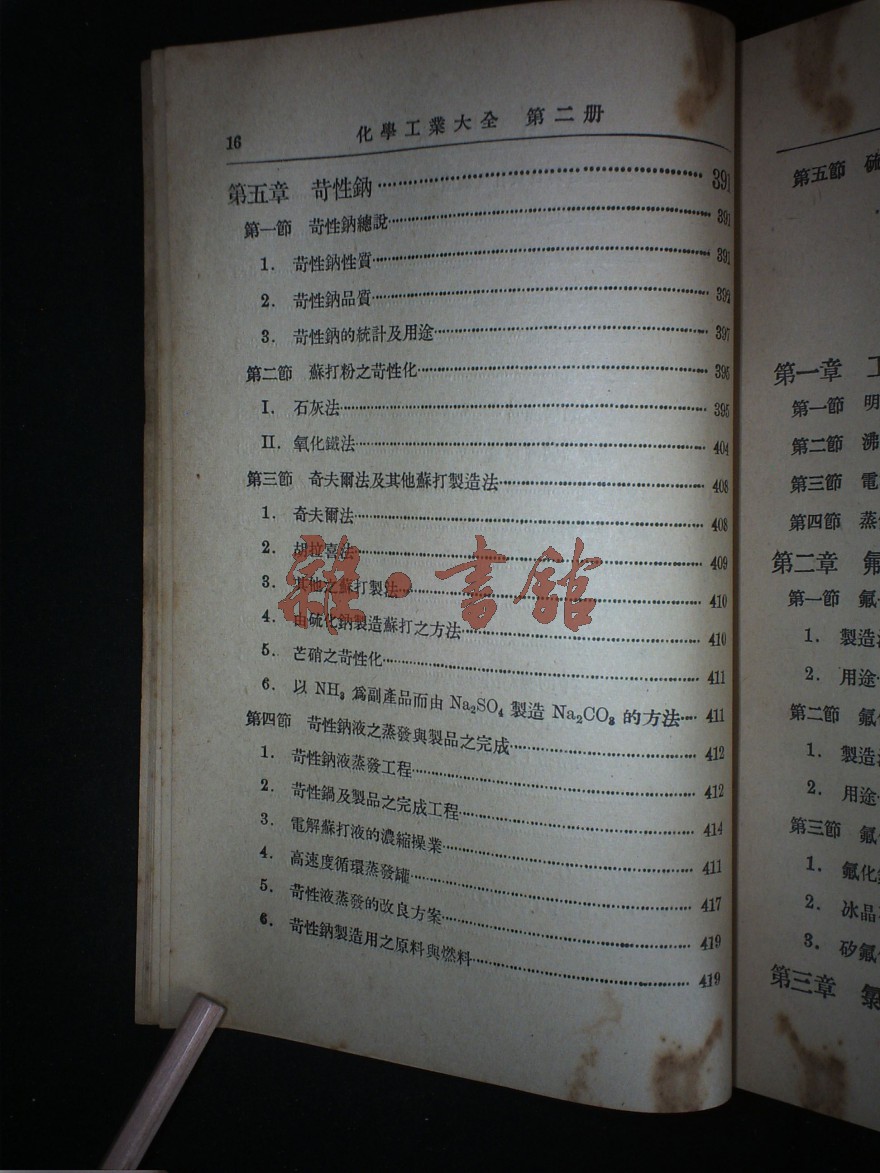 16 化學工業大全 第二册
第五章 苛性鈉 391
第一節 苛性鈉總說 391
1. 苛性鈉性質 391
2. 苛性鈉品質 392
3. 苛性鈉的統計及用途 397
第二節 蘇打粉之苛性化 395
I. 石灰法 395
II. 氧化鐵法 404
第三節 奇夫爾法及其他蘇打製造法 408
1. 奇夫爾法 408
2. 胡拉喜法 409
3. 其他之蘇打製法 410
4. 由硫化鈉製造蘇打之方法 410
5. 芒硝之苛性化 411
6. 以 NH₃ 爲副產品而由 Na₂SO₄ 製造 Na₂CO₃ 的方法 411
第四節 苛性鈉液之蒸發與製品之完成 412
1. 苛性鈉液蒸發工程 412
2. 苛性鍋及製品之完成工程 414
3. 電解蘇打液的濃縮操業 411
4. 高速度循環蒸發罐 417
5. 苛性液蒸發的改良方案 419
6. 苛性鈉製造用之原料與燃料 419
雜·書館
第五節 硫
第一章 工
第一節 明
第二節 沸
第三節 電
第四節 蒸
第二章 氟
第一節 氟
1. 製造
2. 用途
第二節 氟
1. 製造
2. 用途
第三節 氟
1. 氟化
2. 冰晶
3. 矽氟
第三章